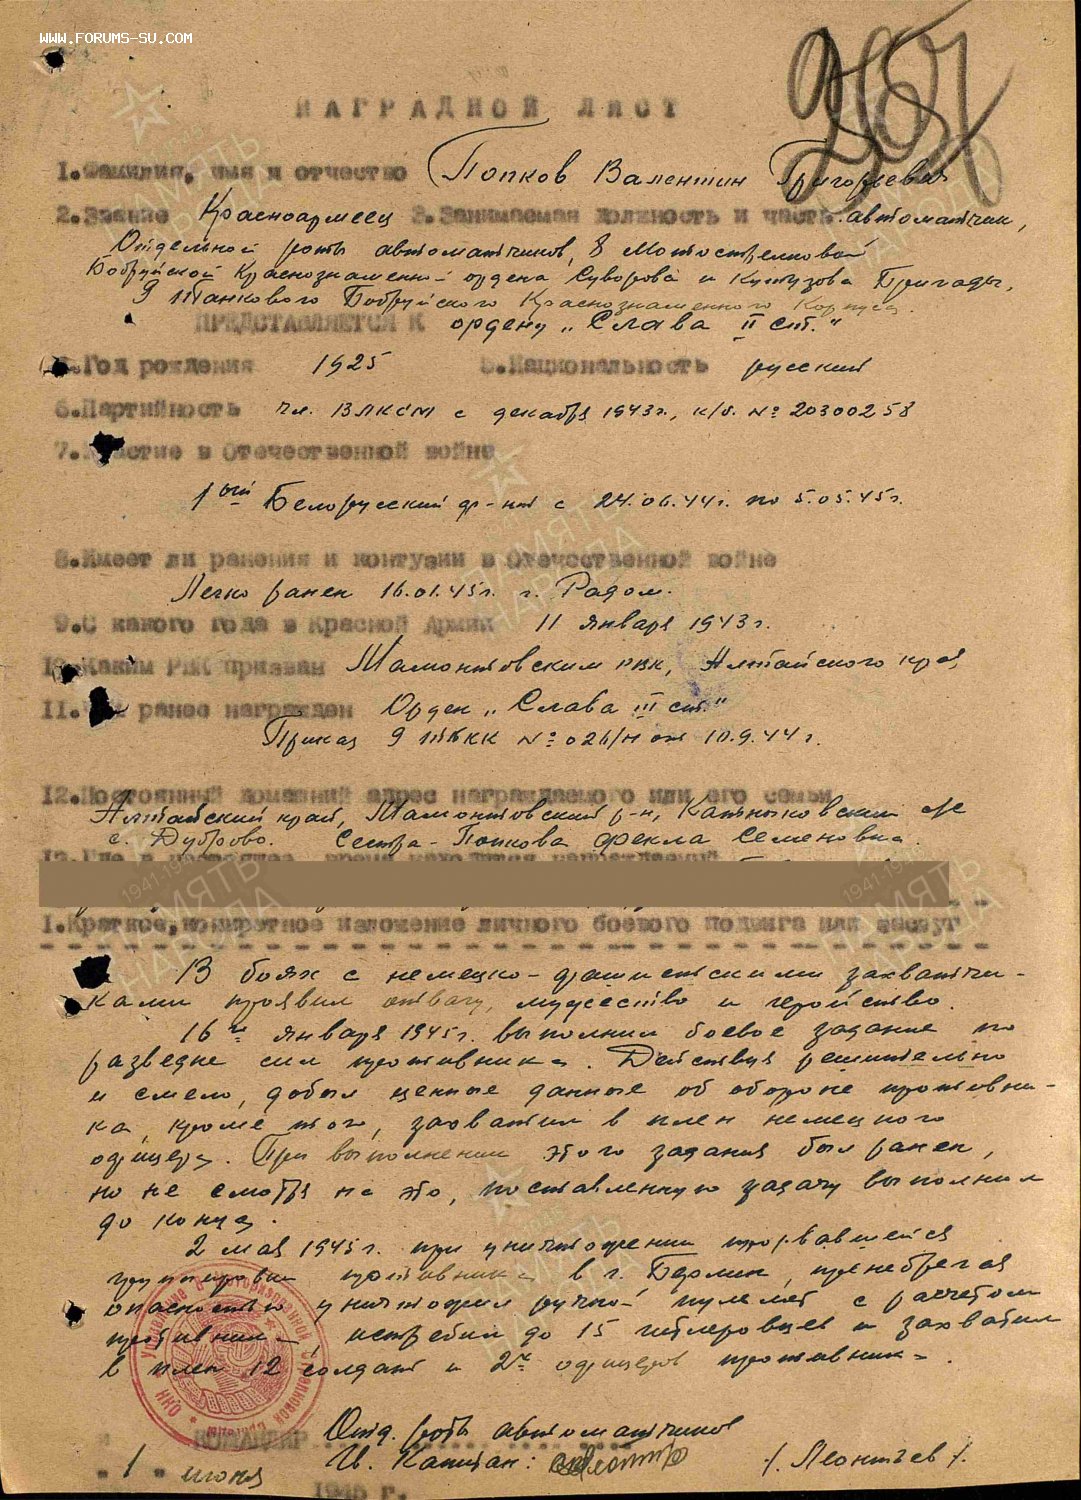 WWW.FORUMS-SU.COM
НАГРАДНОЙ ЛИСТ
1.Фамилия, имя и отчество Попков Валентин Григорьевич
2.Звание Красноармеец 3.Занимаемая должность и часть автоматчик,
Отдельной роты автоматчиков, 8 Мотострелковой
Бобруйской Краснознаменной ордена Суворова и Кутузова Бригады,
9 Танкового Бобруйского Краснознаменного Корпуса.
ПРЕДСТАВЛЯЕТСЯ К ордену „Слава II ст."
4.Год рождения 1925 5.Национальность русский
6.Партийность чл. ВЛКСМ с декабря 1943г., к/б. № 20300258
7.Участие в Отечественной войне
1ый Белорусский фр-нт с 24.06.44г. по 5.05.45г.
8.Имеет ли ранения и контузии в Отечественной войне
Легко ранен 16.01.45г. г. Радом.
9.С какого года в Красной Армии 11 января 1943г.
10.Каким РВК призван Мамонтовским рвк, Алтайского края
11. ранее награжден Орден „Слава III ст."
Приказ 9 ТБКК № 026/н от 10.9.44г.
12.Постоянный домашний адрес награждаемого или его семьи
Алтайский край, Мамонтовский р-н, с/с
с. Дуброво. Сестра - Попкова Фекла Семеновна.
1.Краткое, конкретное изложение личного боевого подвига или заслуг
В боях с немецко-фашистскими захватчи-
ками проявил отвагу, мужество и геройство.
16го января 1945г. выполнил боевое задание по
разведке сил противника. Действуя решительно
и смело, добыл ценные данные об обороне противни-
ка, кроме того, захватил в плен немецкого
офицера. При выполнении этого задания был ранен,
но не смотря на это, поставленную задачу выполнил
до конца.
2 мая 1945г. при уничтожении прорвавшейся
группировки противника в г. Берлин, пренебрегая
опасностью уничтожил ручной пулемет с расчетом
противника, истребил до 15 гитлеровцев и захватил
в плен 12 солдат и 2х офицеров противника.
КОМАНДИР Отд. роты автоматчиков
Гв. Капитан: /Леонтьев/.
"1" июня
1945 г.
1941-1945
ПАМЯТЬ
НАРОДА